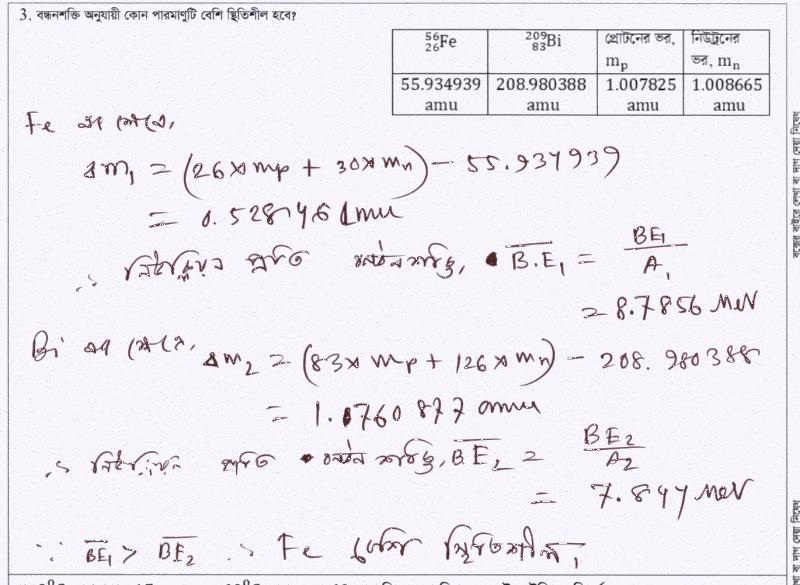 3. বন্ধনশক্তি অনুযায়ী কোন পারমাণুটি বেশি স্থিতিশীল হবে?
⁵⁶₂₆Fe ²⁰⁹₈₃Bi প্রোটনের ভর, mₚ নিউট্রনের ভর, mₙ
55.934939 amu 208.980388 amu 1.007825 amu 1.008665 amu
Fe এর ক্ষেত্রে,
Δm₁ = (26 × mp + 30 × mn) − 55.934939
= 0.528461 amu
∴ নিউক্লিয়ন প্রতি বন্ধন শক্তি, B.E₁ = BE₁/A₁
= 8.7856 MeV
Bi এর ক্ষেত্রে, Δm₂ = (83 × mp + 126 × mn) − 208.980388
= 1.760877 amu
∴ নিউক্লিয়ন প্রতি বন্ধন শক্তি, BE₂ = BE₂/A₂
= 7.844 MeV
∵ BE₁ > BE₂ ∴ Fe বেশি স্থিতিশীল,